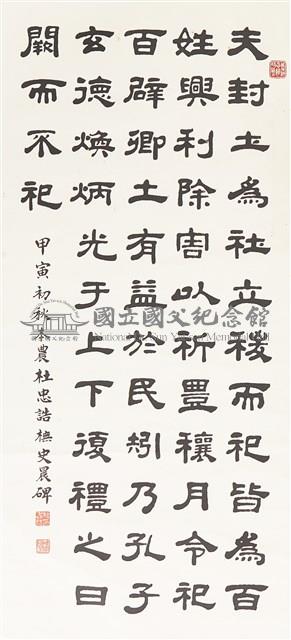 夫封土為社立稷而祀皆為百
姓興利除害以祈豊穰月令祀
百辟卿士有益於民矧乃孔子
玄德煥炳光于上下復禮之日
闕而不祀
甲寅初秋農杜忠誥橅史晨碑
國立國父紀念館
National Dr. Sun Yat-sen Memorial Hall